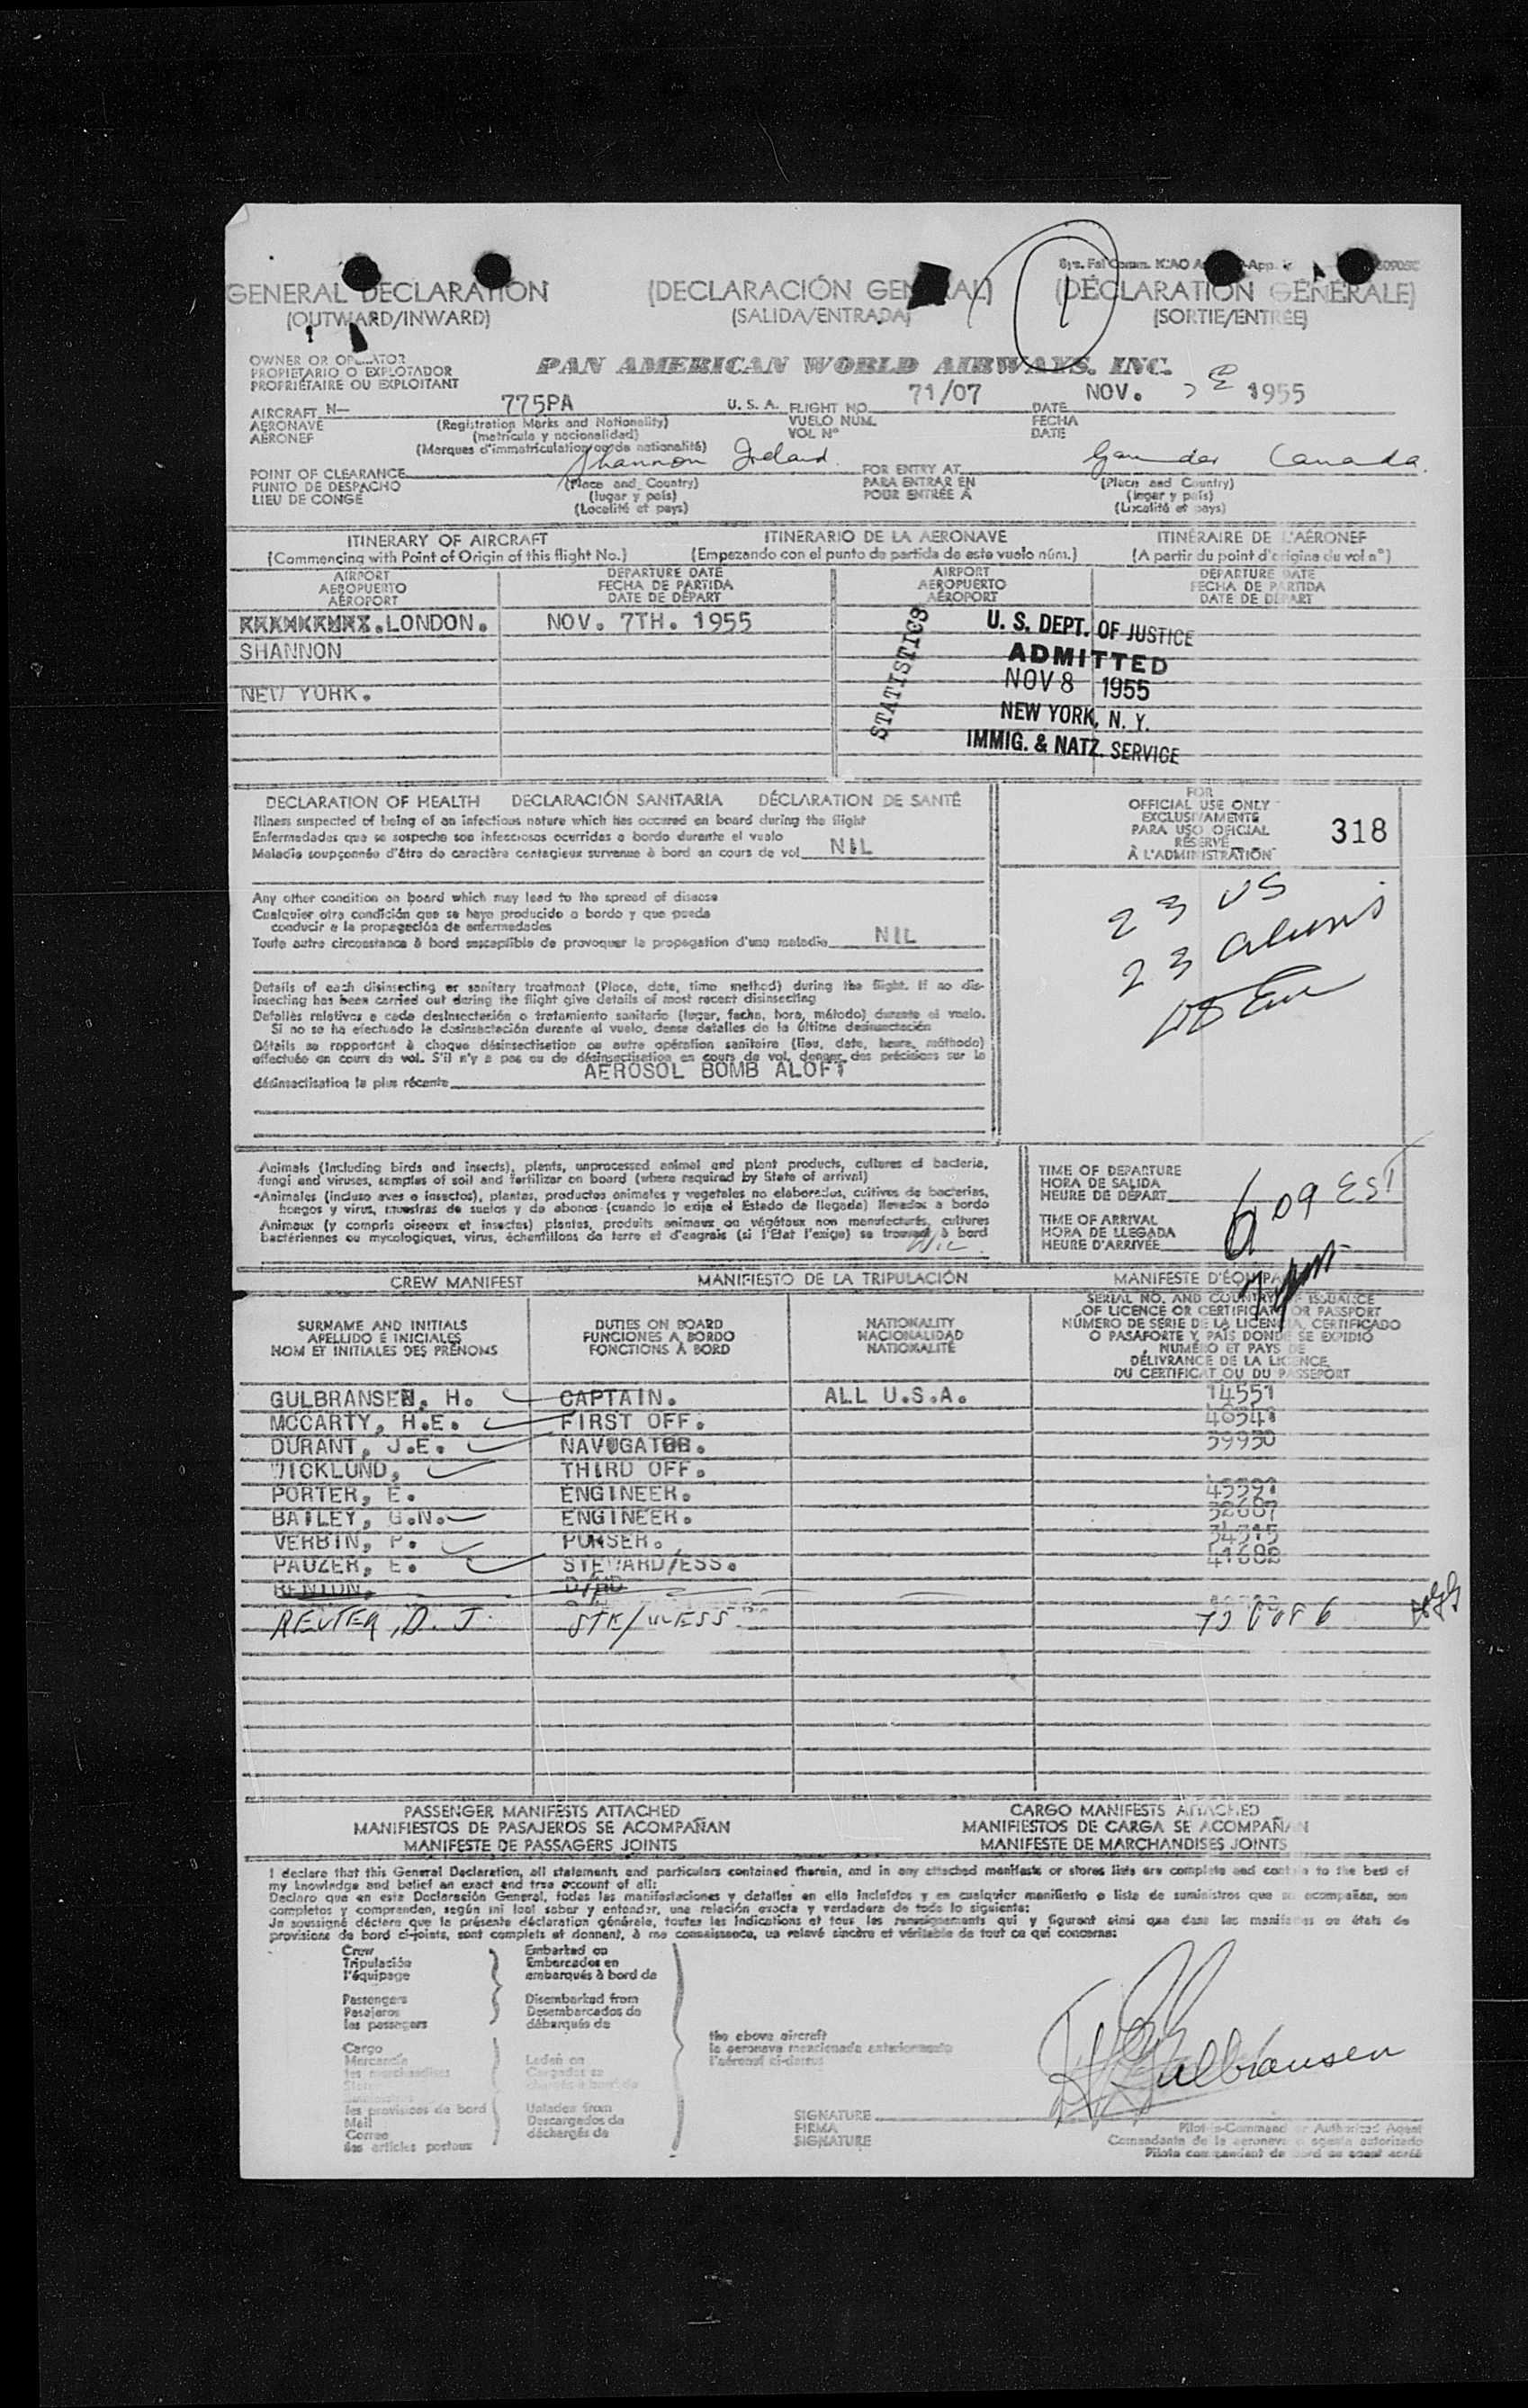 GENERAL DECLARATION
(OUTWARD/INWARD)
(DECLARACIÓN GENERAL)
(SALIDA/ENTRADA)
(DÉCLARATION GÉNÉRALE)
(SORTIE/ENTRÉE)
OWNER OR OPERATOR
PROPIETARIO O EXPLOTADOR
PROPRIÉTAIRE OU EXPLOITANT
PAN AMERICAN WORLD AIRWAYS, INC.
AIRCRAFT N- 775PA U.S.A. FLIGHT NO. 71/07 DATE NOV. 1955
AERONAVE (Registration Marks and Nationality) VUELO NÚM. FECHA
AÉRONEF (matrícula y nacionalidad) VOL N° DATE
(Marques d'immatriculation ou de nationalité)
POINT OF CLEARANCE Shannon Ireland FOR ENTRY AT Gander Canada.
PUNTO DE DESPACHO (Place and Country) PARA ENTRAR EN (Place and Country)
LIEU DE CONGÉ (lugar y país) POUR ENTRÉE À (lugar y país)
(Localité et pays) (Localité et pays)
ITINERARY OF AIRCRAFT ITINERARIO DE LA AERONAVE ITINÉRAIRE DE L'AÉRONEF
(Commencing with Point of Origin of this flight No.) (Empezando con el punto de partida de este vuelo núm.) (A partir du point d'origine du vol n°)
AIRPORT DEPARTURE DATE AIRPORT DEPARTURE DATE
AEROPUERTO FECHA DE PARTIDA AEROPUERTO FECHA DE PARTIDA
AÉROPORT DATE DE DÉPART AÉROPORT DATE DE DÉPART
.LONDON. NOV. 7TH. 1955
SHANNON
NEW YORK.
STATISTICS
U. S. DEPT. OF JUSTICE
ADMITTED
NOV 8 1955
NEW YORK, N. Y.
IMMIG. & NATZ. SERVICE
DECLARATION OF HEALTH DECLARACIÓN SANITARIA DÉCLARATION DE SANTÉ
Illness suspected of being of an infectious nature which has occured on board during the flight
Enfermedades que se sospeche son infecciosas ocurridas a bordo durante el vuelo
Maladie soupçonnée d'être de caractère contagieux survenue à bord en cours de vol NIL
Any other condition on board which may lead to the spread of disease
Cualquier otra condición que se haya producido a bordo y que pueda
conducir a la propagación de enfermedades
Toute autre circonstance à bord susceptible de provoquer la propagation d'une maladie NIL
Details of each disinsecting or sanitary treatment (Place, date, time method) during the flight. If no dis-
insecting has been carried out during the flight give details of most recent disinsecting
Detalles relativos a cada desinsectación o tratamiento sanitario (lugar, fecha, hora, método) durante el vuelo.
Si no se ha efectuado la desinsectación durante el vuelo, dense detalles de la última desinsectación
Détails se rapportant à chaque désinsectisation ou autre opération sanitaire (lieu, date, heure, méthode)
effectuée en cours de vol. S'il n'y a pas eu de désinsectisation en cours de vol, donner des précisions sur la
désinsectisation la plus récente AEROSOL BOMB ALOFT
FOR
OFFICIAL USE ONLY
EXCLUSIVAMENTE
PARA USO OFICIAL
RÉSERVÉ
À L'ADMINISTRATION
318
23 US
23 aliens
Animals (including birds and insects), plants, unprocessed animal and plant products, cultures of bacteria,
fungi and viruses, samples of soil and fertilizer on board (where required by State of arrival)
Animales (incluso aves e insectos), plantas, productos animales y vegetales no elaborados, cultivos de bacterias,
hongos y virus, muestras de suelos y de abonos (cuando lo exija el Estado de llegada) llevados a bordo
Animaux (y compris oiseaux et insectes) plantes, produits animaux ou végétaux non manufacturés, cultures
bactériennes ou mycologiques, virus, échantillons de terre et d'engrais (si l'Etat l'exige) se trouvant à bord Nil
TIME OF DEPARTURE
HORA DE SALIDA
HEURE DE DÉPART
609 EST
TIME OF ARRIVAL
HORA DE LLEGADA
HEURE D'ARRIVÉE
CREW MANIFEST MANIFIESTO DE LA TRIPULACIÓN MANIFESTE D'ÉQUIPAGE
SURNAME AND INITIALS
APELLIDO E INICIALES
NOM ET INITIALES DES PRÉNOMS
DUTIES ON BOARD
FUNCIONES A BORDO
FONCTIONS À BORD
NATIONALITY
NACIONALIDAD
NATIONALITÉ
SERIAL NO. AND COUNTRY OF ISSUANCE
OF LICENCE OR CERTIFICATE OR PASSPORT
NÚMERO DE SERIE DE LA LICENCIA, CERTIFICADO
O PASAPORTE Y PAÍS DONDE SE EXPIDIÓ
NUMÉRO ET PAYS DE
DÉLIVRANCE DE LA LICENCE
DU CERTIFICAT OU DU PASSEPORT
GULBRANSEN, H. CAPTAIN. ALL U.S.A. 14551
MCCARTY, H.E. FIRST OFF.
DURANT, J.E. NAVUGATOR. 39930
WICKLUND, THIRD OFF.
PORTER, E. ENGINEER.
BAILEY, G.N. ENGINEER.
VERBIN, P. PURSER.
PAUZER, E. STEWARD/ESS.
RENTON, D/HD
REUTER, D. J.
PASSENGER MANIFESTS ATTACHED
MANIFIESTOS DE PASAJEROS SE ACOMPAÑAN
MANIFESTE DE PASSAGERS JOINTS
CARGO MANIFESTS ATTACHED
MANIFIESTOS DE CARGA SE ACOMPAÑAN
MANIFESTE DE MARCHANDISES JOINTS
I declare that this General Declaration, all statements and particulars contained therein, and in any attached manifests or stores lists are complete and contain to the best of
my knowledge and belief an exact and true account of all:
Declaro que en esta Declaración General, todas las manifestaciones y detalles en ella incluídos y en cualquier manifiesto o lista de suministros que se acompañan, son
completos y comprenden, según mi leal saber y entender, una relación exacta y verdadera de todo lo siguiente:
Je soussigné déclare que la présente déclaration générale, toutes les indications et tous les renseignements qui y figurent ainsi que dans les manifestes ou états de
provisions de bord ci-joints, sont complets et donnent, à ma connaissance, un relevé sincère et véritable de tout ce qui concerne:
Crew
Tripulación
l'équipage
Passengers
Pasajeros
les passagers
Cargo
Mercancía
les marchandises
les provisions de bord
Mail
Correo
des articles postaux
Embarked on
Embarcados en
embarqués à bord de
Disembarked from
Desembarcados de
débarqués de
Laden on
Cargados en
Unladen from
Descargados de
déchargés de
the above aircraft
la aeronave mencionada anteriormente
l'aéronef ci-dessus
H Gulbransen
SIGNATURE
FIRMA
SIGNATURE
Pilot-in-Command or Authorized Agent
Comandante de la aeronave o agente autorizado
Pilote commandant de bord ou agent agréé